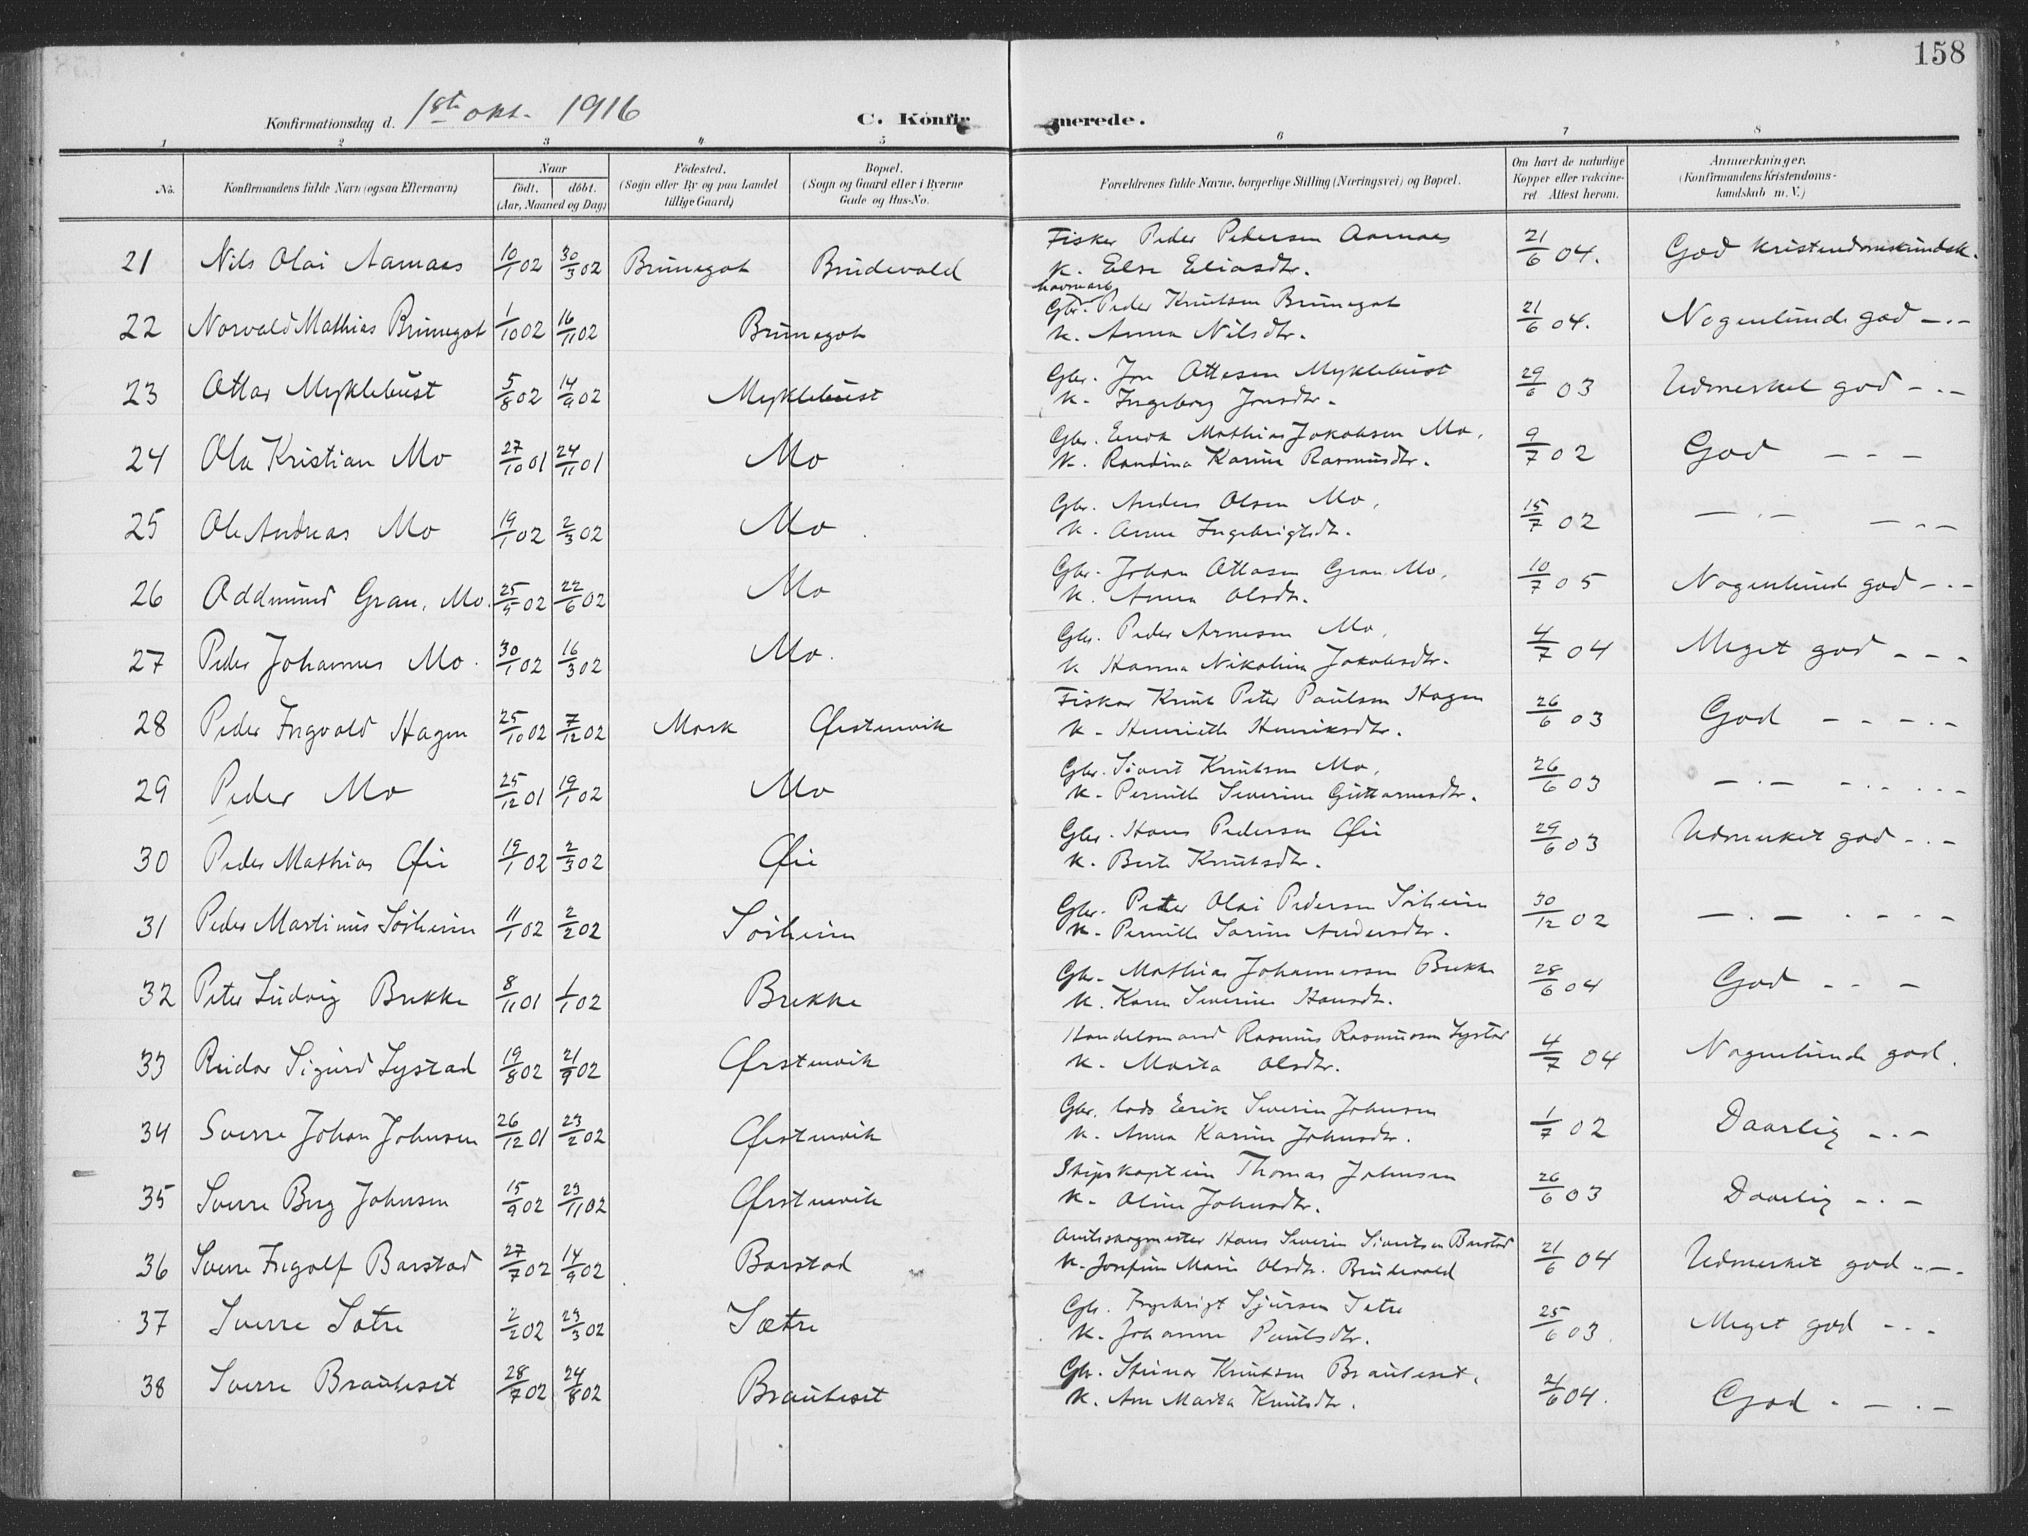 158
Konfirmationsdag d. 1ste okt. 1916
C. Konfirmerede.
1 2 3 4 5 6 7 8
No.
Konfirmandens fulde Navn (ogsaa Efternavn)
Naar
födt. döbt.
(Aar, Maaned og Dag)
Födested.
(Sogn eller By og paa Landet
tillige Gaard)
Bopæl.
(Sogn og Gaard eller i Byerne
Gade og Hus-No.
Forældrenes fulde Navne, borgerlige Stilling (Næringsvei) og Bopæl.
Om havt de naturlige
Kopper eller vakcine-
ret Attest herom.
Anmerkninger.
(Konfirmandens Kristendoms-
kundskab m. V.)
21 Nils Olai Aarnaes 10/1 02 30/3 02 Brunegot Brudevold Fisker Peder Pedersen Aarnaes 21/6 04. God kristendomskundsk.
k. Else Eliasdtr.
22 Norvald Mathias Brunegot 1/10 02 16/11 02 Brunegot Gbr. Peder Knutsen Brunegot 21/6 04. Nogenlunde god - . -
k. Anna Nilsdtr.
23 Ottar Myklebust 5/8 02 14/9 02 Myklebust Gbr. Jon Ottesen Myklebust 29/6 03 Udmerket god - . -
k. Ingeborg Jonsdtr.
24 Ola Kristian Mo 27/10 01 24/11 01 Mo Gbr. Enok Mathias Jakobsen Mo, 9/7 02 God - - -
k. Randina Karine Rasmusdtr.
25 Ole Andreas Mo 19/1 02 2/3 02 Mo Gbr. Anders Olsen Mo, 15/7 02 - . - - . -
k. Anne Ingebrigtsdtr.
26 Oddmund Gran, Mo. 25/5 02 22/6 02 Mo Gbr. Johan Ottesen Gran, Mo, 10/7 05 Nogenlunde god - . -
k. Anna Olsdtr.
27 Peder Johannes Mo. 30/1 02 16/3 02 Mo. Gbr. Peder Arnesen Mo, 4/7 04 Meget god - - -
k Hanna Nikoline Jakobsdtr.
28 Peder Ingvald Hagen 25/10 02 7/12 02 Mork Ørstenvik Fisker Knut Peter Paulsen Hagen 26/6 03 God - - - . -
k. Henriette Henriksdtr.
29 Peder Mo 25/12 01 19/1 02 Mo Gbr. Sivert Knutsen Mo, 26/6 03 - . - - . . . -
k. Pernille Severine Guttormsdtr.
30 Peder Mathias Øie 19/1 02 2/3 02 Øie Gbr. Hans Pedersen Øie 29/6 03 Udmerket god - . -
k. Berte Knutsdtr.
31 Peder Martinus Sörheim 11/1 02 2/2 02 Sörheim Gbr. Peter Olai Pedersen Sörheim 30/12 02 - . - . - - -
k. Pernille Sarine Andersdtr.
32 Peter Ludvig Brekke 8/11 01 1/1 02 Brekke Gbr. Mathias Johannessen Brekke 28/6 04 God - - -
k. Karen Severine Hansdtr.
33 Reidar Sigurd Systad 19/8 02 21/9 02 Ørstenvik Handelsmand Rasmus Rasmussen Systad 4/7 04 Nogenlunde god.
k. Marta Olsdtr.
34 Sverre Johan Johnsen 26/12 01 23/2 02 Ørstenvik Gbr. lods Erik Severin Johnsen 1/7 02 Daarlig - . -
k. Anna Karine Johnsdtr.
35 Sverre Berg Johnsen 15/9 02 23/11 02 Ørstenvik Skipskaptein Thomas Johnsen 26/6 03 Daarlig - . -
k. Oline Johnsdtr.
36 Sverre Ingolf Barstad 27/7 02 14/9 02 Barstad Amtsvegmester Hans Severin Sivertsen Barstad 21/6 04 Udmerket god - . - .
k. Josefine Marie Olsdtr. Brudevold
37 Sverre Sætre 2/2 02 23/3 02 Sætre Gbr. Ingebrigt Sjursen Sætre 25/6 03. Meget god - - -
k. Johanne Paulsdtr.
38 Sverre Brauteset 28/7 02 24/8 02 Brauteset Gbr. Steinar Knutsen Brauteset. 21/6 04. God . - . -
k. Ane Marta Knutsdtr.